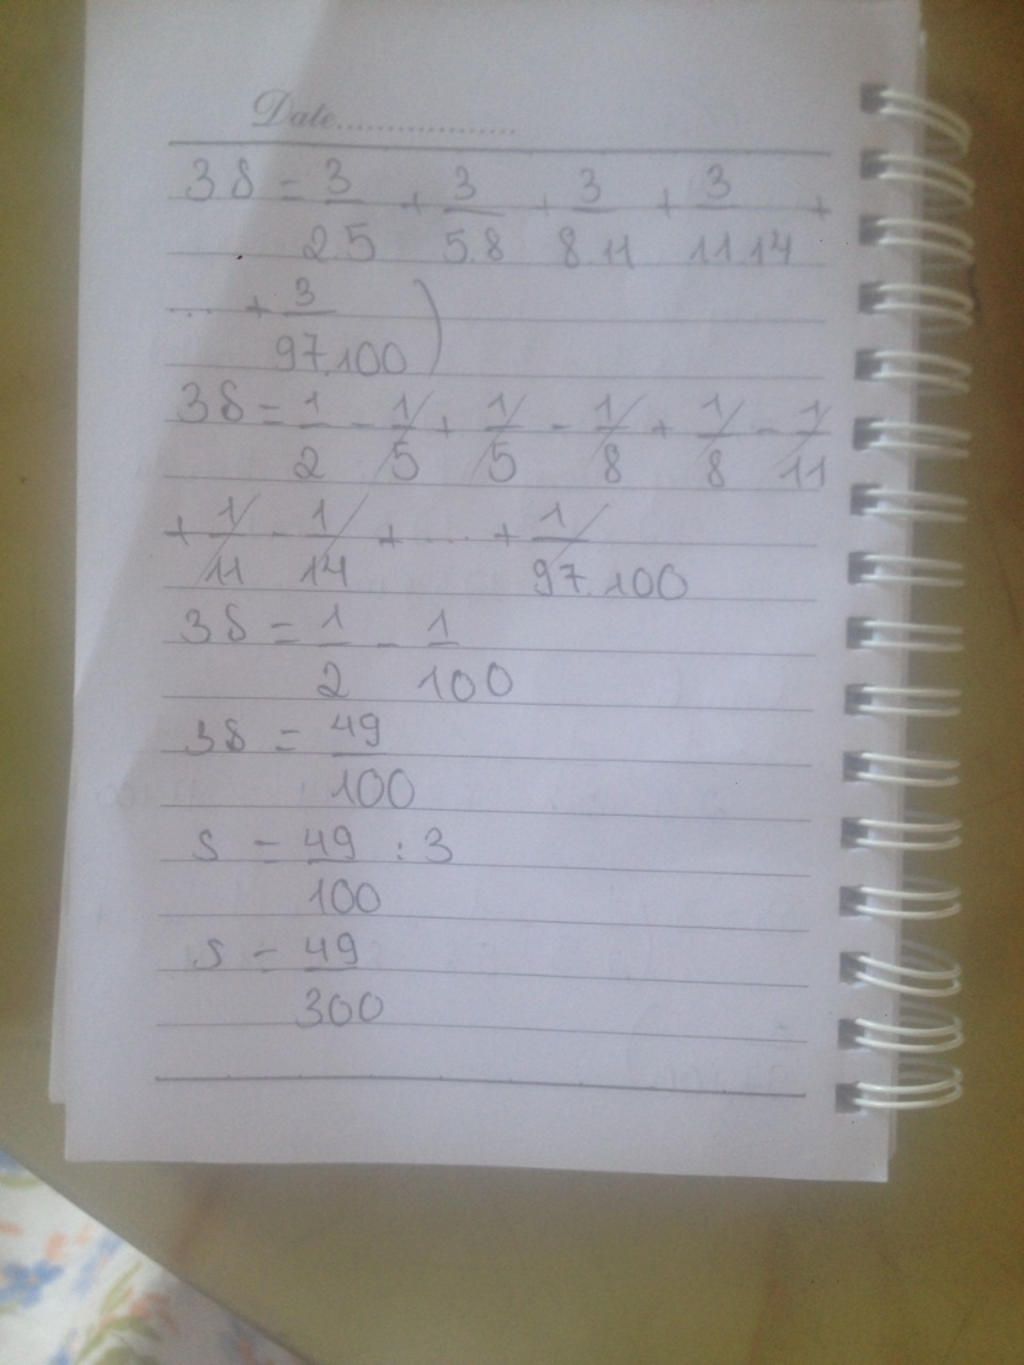 Date..................
3S = 3/2.5 + 3/5.8 + 3/8.11 + 3/11.14 +
... + 3/97.100 )
3S = 1/2 - 1/5 + 1/5 - 1/8 + 1/8 - 1/11
+ 1/11 - 1/14 + ... + 1/97.100
3S = 1/2 - 1/100
3S = 49/100
S = 49/100 : 3
S = 49/300